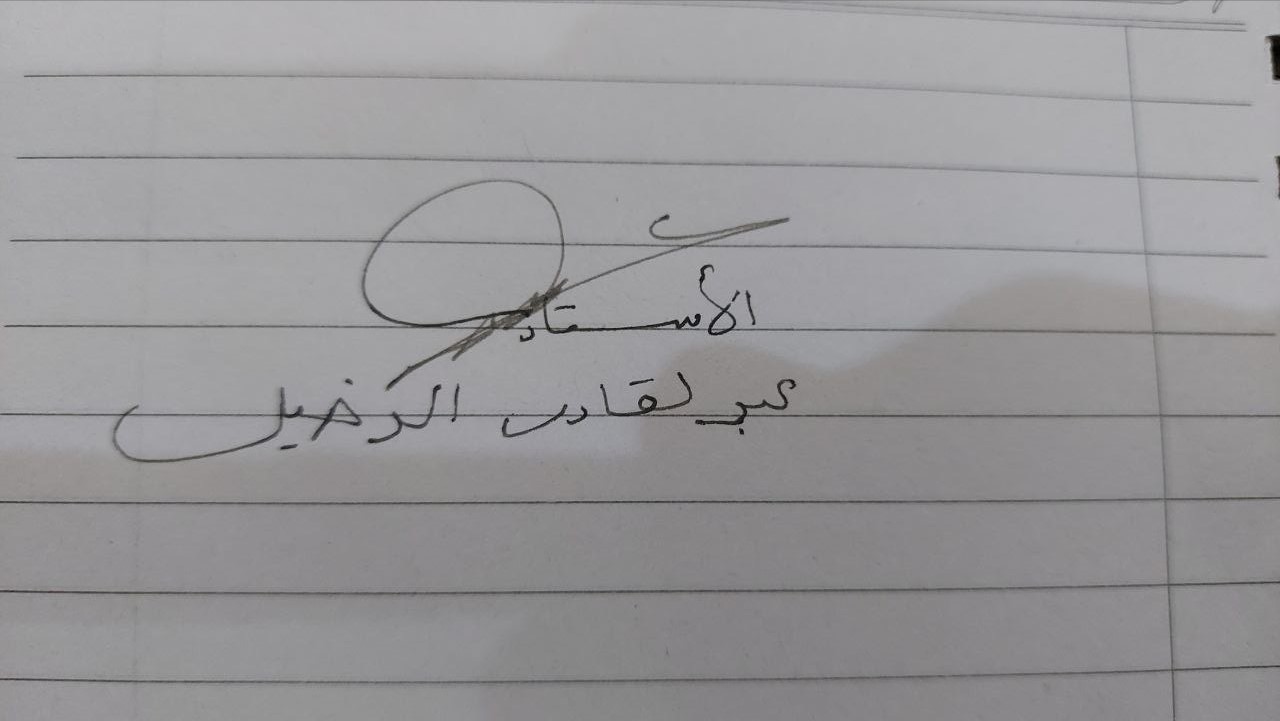 الأستاذ
عبد لقادر الدخيل